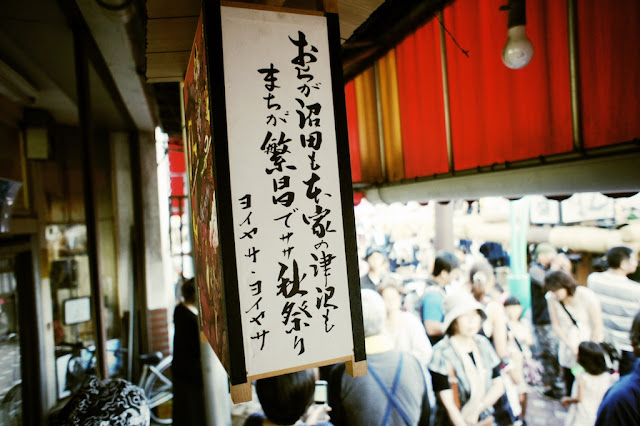 おらが沼田も本家の津沢も
まちが繁昌でササ秋祭り
ヨイヤサ・ヨイヤサ